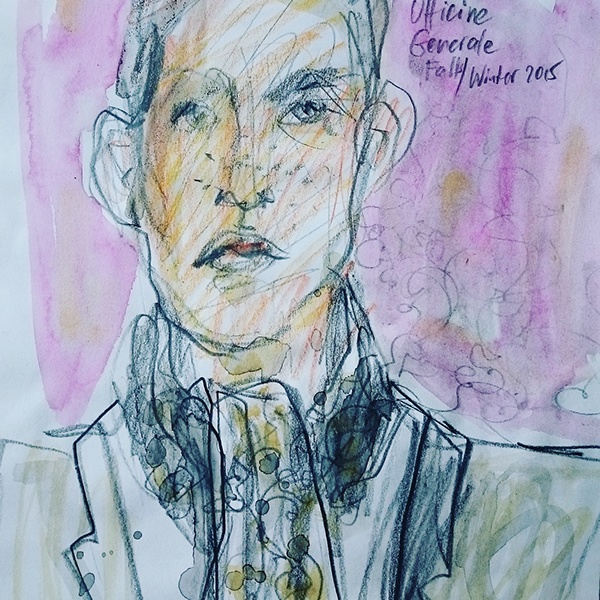 Officine
Generale
Fall/Winter 2015